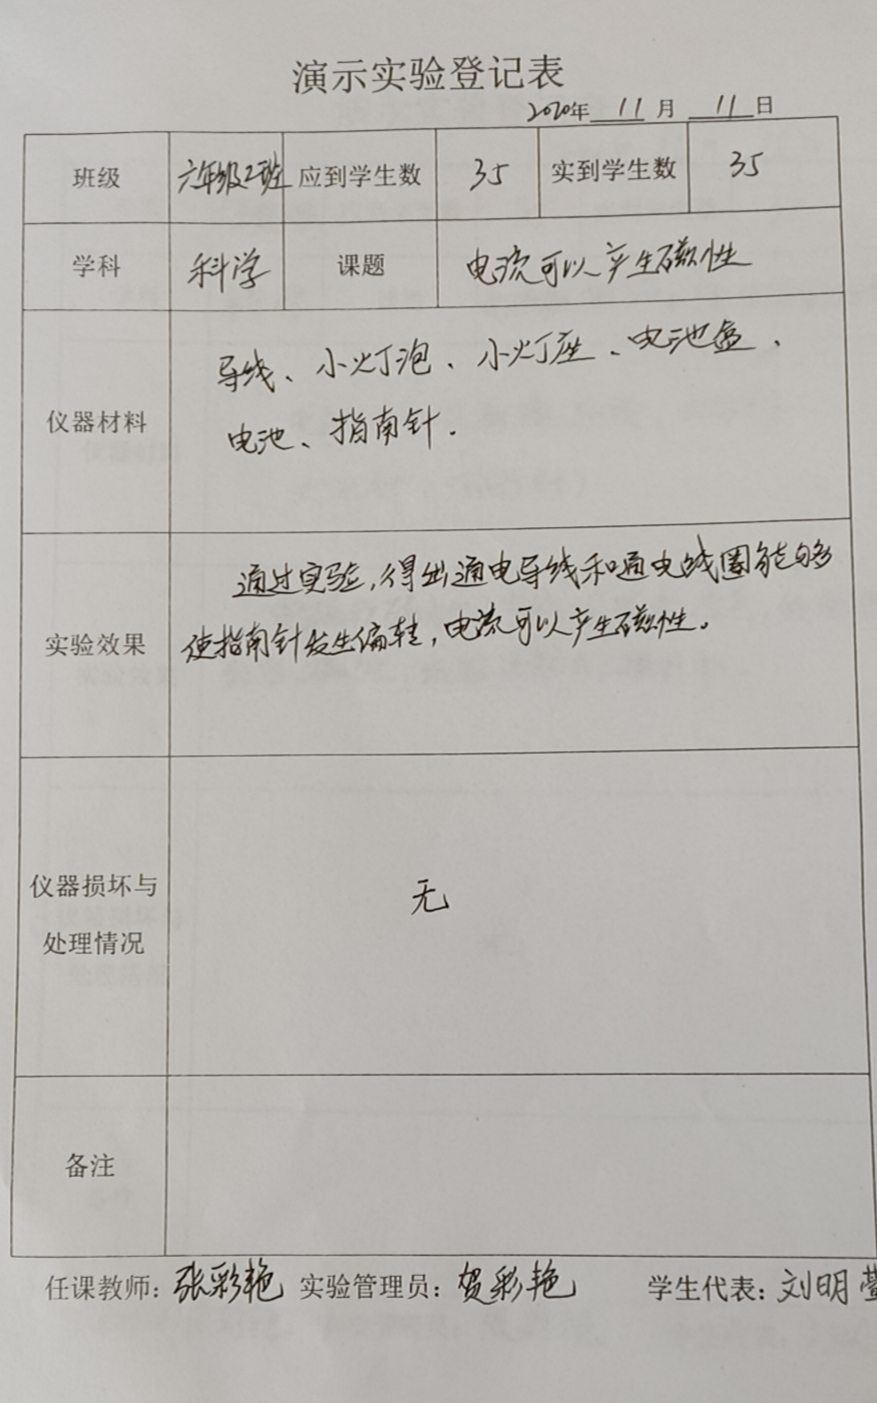 演示实验登记表
2020年 11 月 11 日
班级 六年级2班 应到学生数 35 实到学生数 35
学科 科学 课题 电流可以产生磁性
仪器材料 导线、小灯泡、小灯座、电池盒、
电池、指南针.
实验效果 通过实验,得出通电导线和通电线圈能够
使指南针发生偏转,电流可以产生磁性。
仪器损坏与
处理情况 无
备注
任课教师: 张彩艳 实验管理员: 贺彩艳 学生代表: 刘明